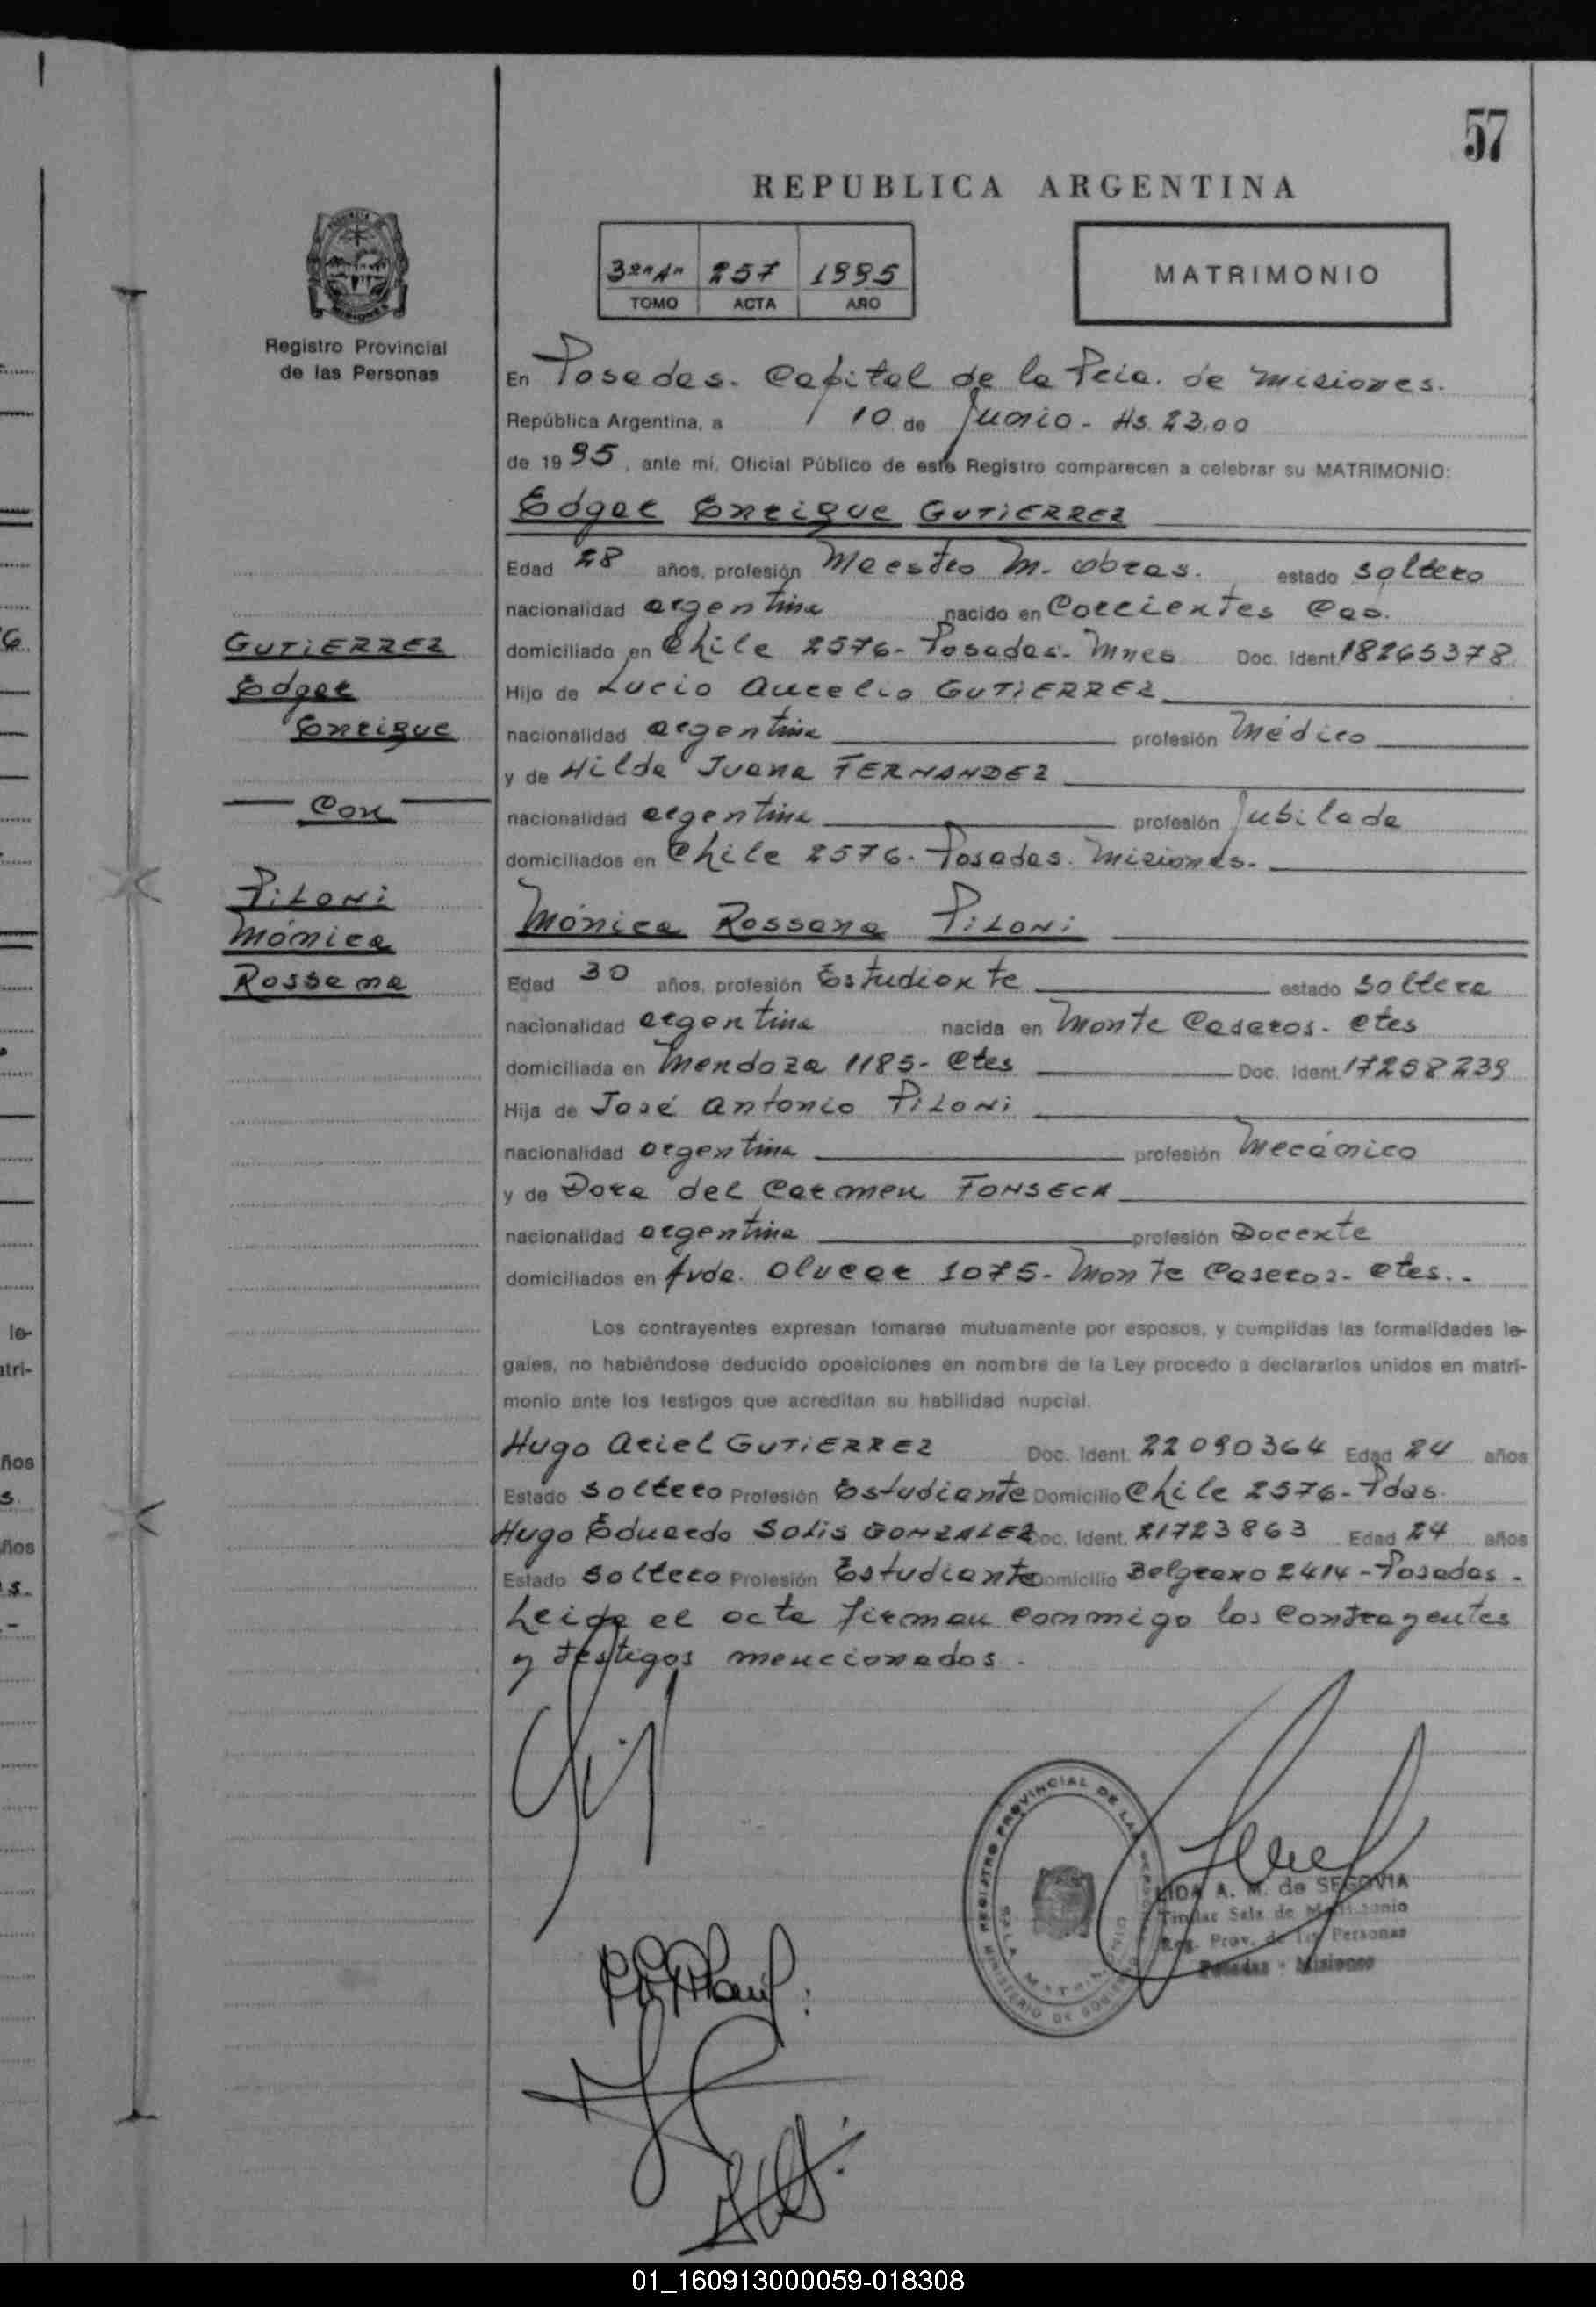 57
REPUBLICA ARGENTINA
257 1995
TOMO ACTA AÑO
MATRIMONIO
Registro Provincial
de las Personas
En Posadas. Capital de la Pcia. de Misiones.
República Argentina, a 10 de Junio - Hs. 23.00
de 1995, ante mí, Oficial Público de este Registro comparecen a celebrar su MATRIMONIO:
Edgar Enrique GUTIERREZ
Edad 28 años, profesión Maestro M. Obras. estado soltero
nacionalidad argentina nacido en Corrientes
domiciliado en Chile 2576- Posadas- Mnes Doc. Ident. 18265378
Hijo de Lucio Aurelio GUTIERREZ
nacionalidad argentina profesión Médico
y de Hilda Juana FERNANDEZ
nacionalidad argentina profesión Jubilada
domiciliados en Chile 2576- Posadas. Misiones.
GUTIERREZ
Edgar
Enrique
Con
PiLONi
Mónica
Rossana
Mónica Rossana PiLONi
Edad 30 años, profesión Estudiante estado soltera
nacionalidad argentina nacida en Monte Caseros- Ctes
domiciliada en Mendoza 1185- Ctes Doc. Ident. 17258239
Hija de José Antonio PiLONi
nacionalidad argentina profesión Mecánico
y de Dora del Carmen FONSECA
nacionalidad argentina profesión Docente
domiciliados en Avda. 1075- Monte Caseros- Ctes..
Los contrayentes expresan tomarse mutuamente por esposos, y cumplidas las formalidades le-
gales, no habiéndose deducido oposiciones en nombre de la Ley procedo a declararlos unidos en matri-
monio ante los testigos que acreditan su habilidad nupcial.
Hugo Ariel GUTIERREZ Doc. Ident. 22090364 Edad 24 años
Estado soltero Profesión Estudiante Domicilio Chile 2576- Pdas.
Hugo Eduardo SOLIS GONZALEZ Doc. Ident. 21723863 Edad 24 años
Estado soltero Profesión Estudiante Domicilio Belgrano 2414 - Posadas -
Leida el acta firman conmigo los contrayentes
y testigos mencionados.
REGISTRO PROVINCIAL DE LAS PERSONAS
MINISTERIO DE GOBIERNO
LIDA A. M. de SEGOVIA
Titular Sala de Matrimonio
Reg. Prov. de las Personas
Posadas - Misiones
01_160913000059-018308